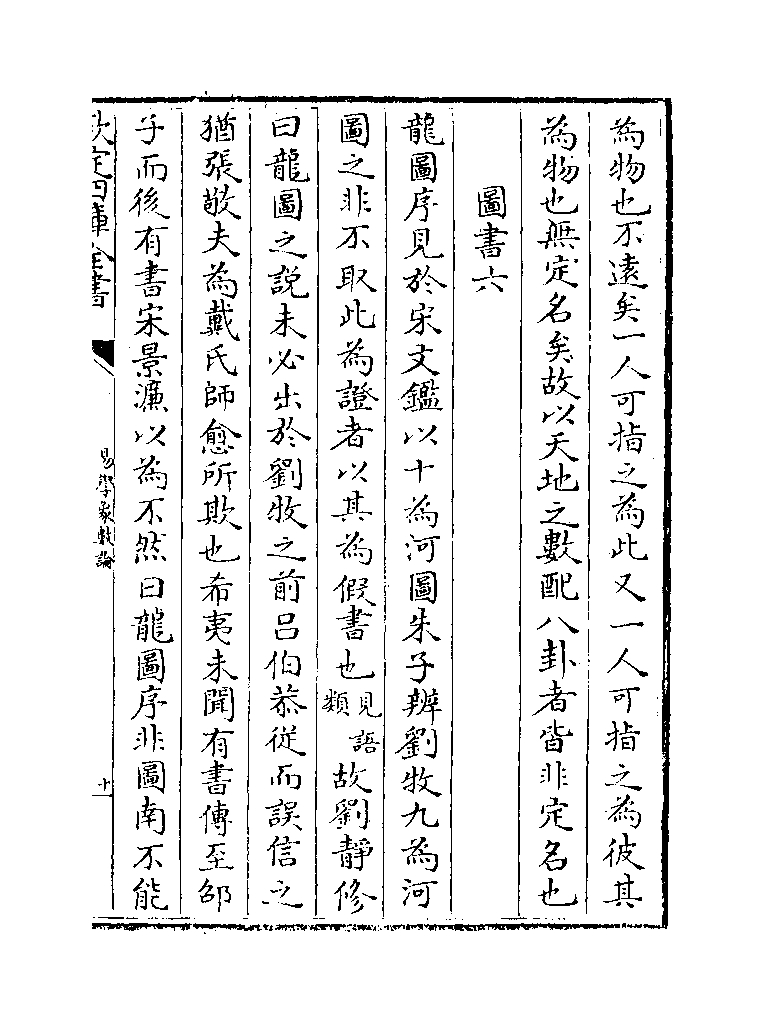 為物也不遠矣一人可指之為此又一人可指之為彼其
為物也無定名矣故以天地之數配八卦者皆非定名也
圖書六
龍圖序見於宋文鑑以十為河圖朱子辨劉牧九為河
圖之非不取此為證者以其為假書也見語類故劉靜修
曰龍圖之説未必出於劉牧之前吕伯恭從而誤信之
猶張敬夫為戴氏師愈所欺也希夷未聞有書傳至邵
子而後有書宋景濂以為不然曰龍圖序非圖南不能
欽定四庫全書
易學象數論
十一